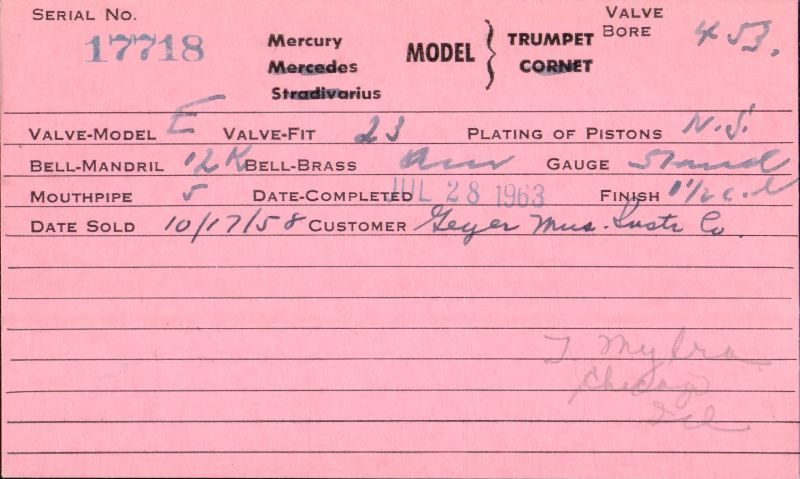 SERIAL NO. 17718 Mercury MODEL } TRUMPET VALVE BORE 453.
Mercedes CORNET
Stradivarius
VALVE-MODEL E VALVE-FIT 23 PLATING OF PISTONS N.S.
BELL-MANDRIL 12K BELL-BRASS GAUGE Stand
MOUTHPIPE 5 DATE-COMPLETED JUL 28 1963 FINISH
DATE SOLD 10/17/58 CUSTOMER Geyer Mus. Instr Co.
Chicago
Ill